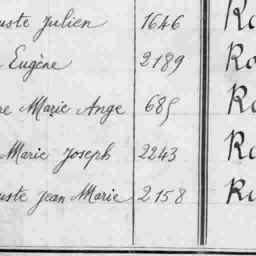 uste Julien 1646 Ro
Eugène 2189 Ro
re Marie Ange 685 Ro
Marie Joseph 2243 Ro
uste Jean Marie 2158 Ro